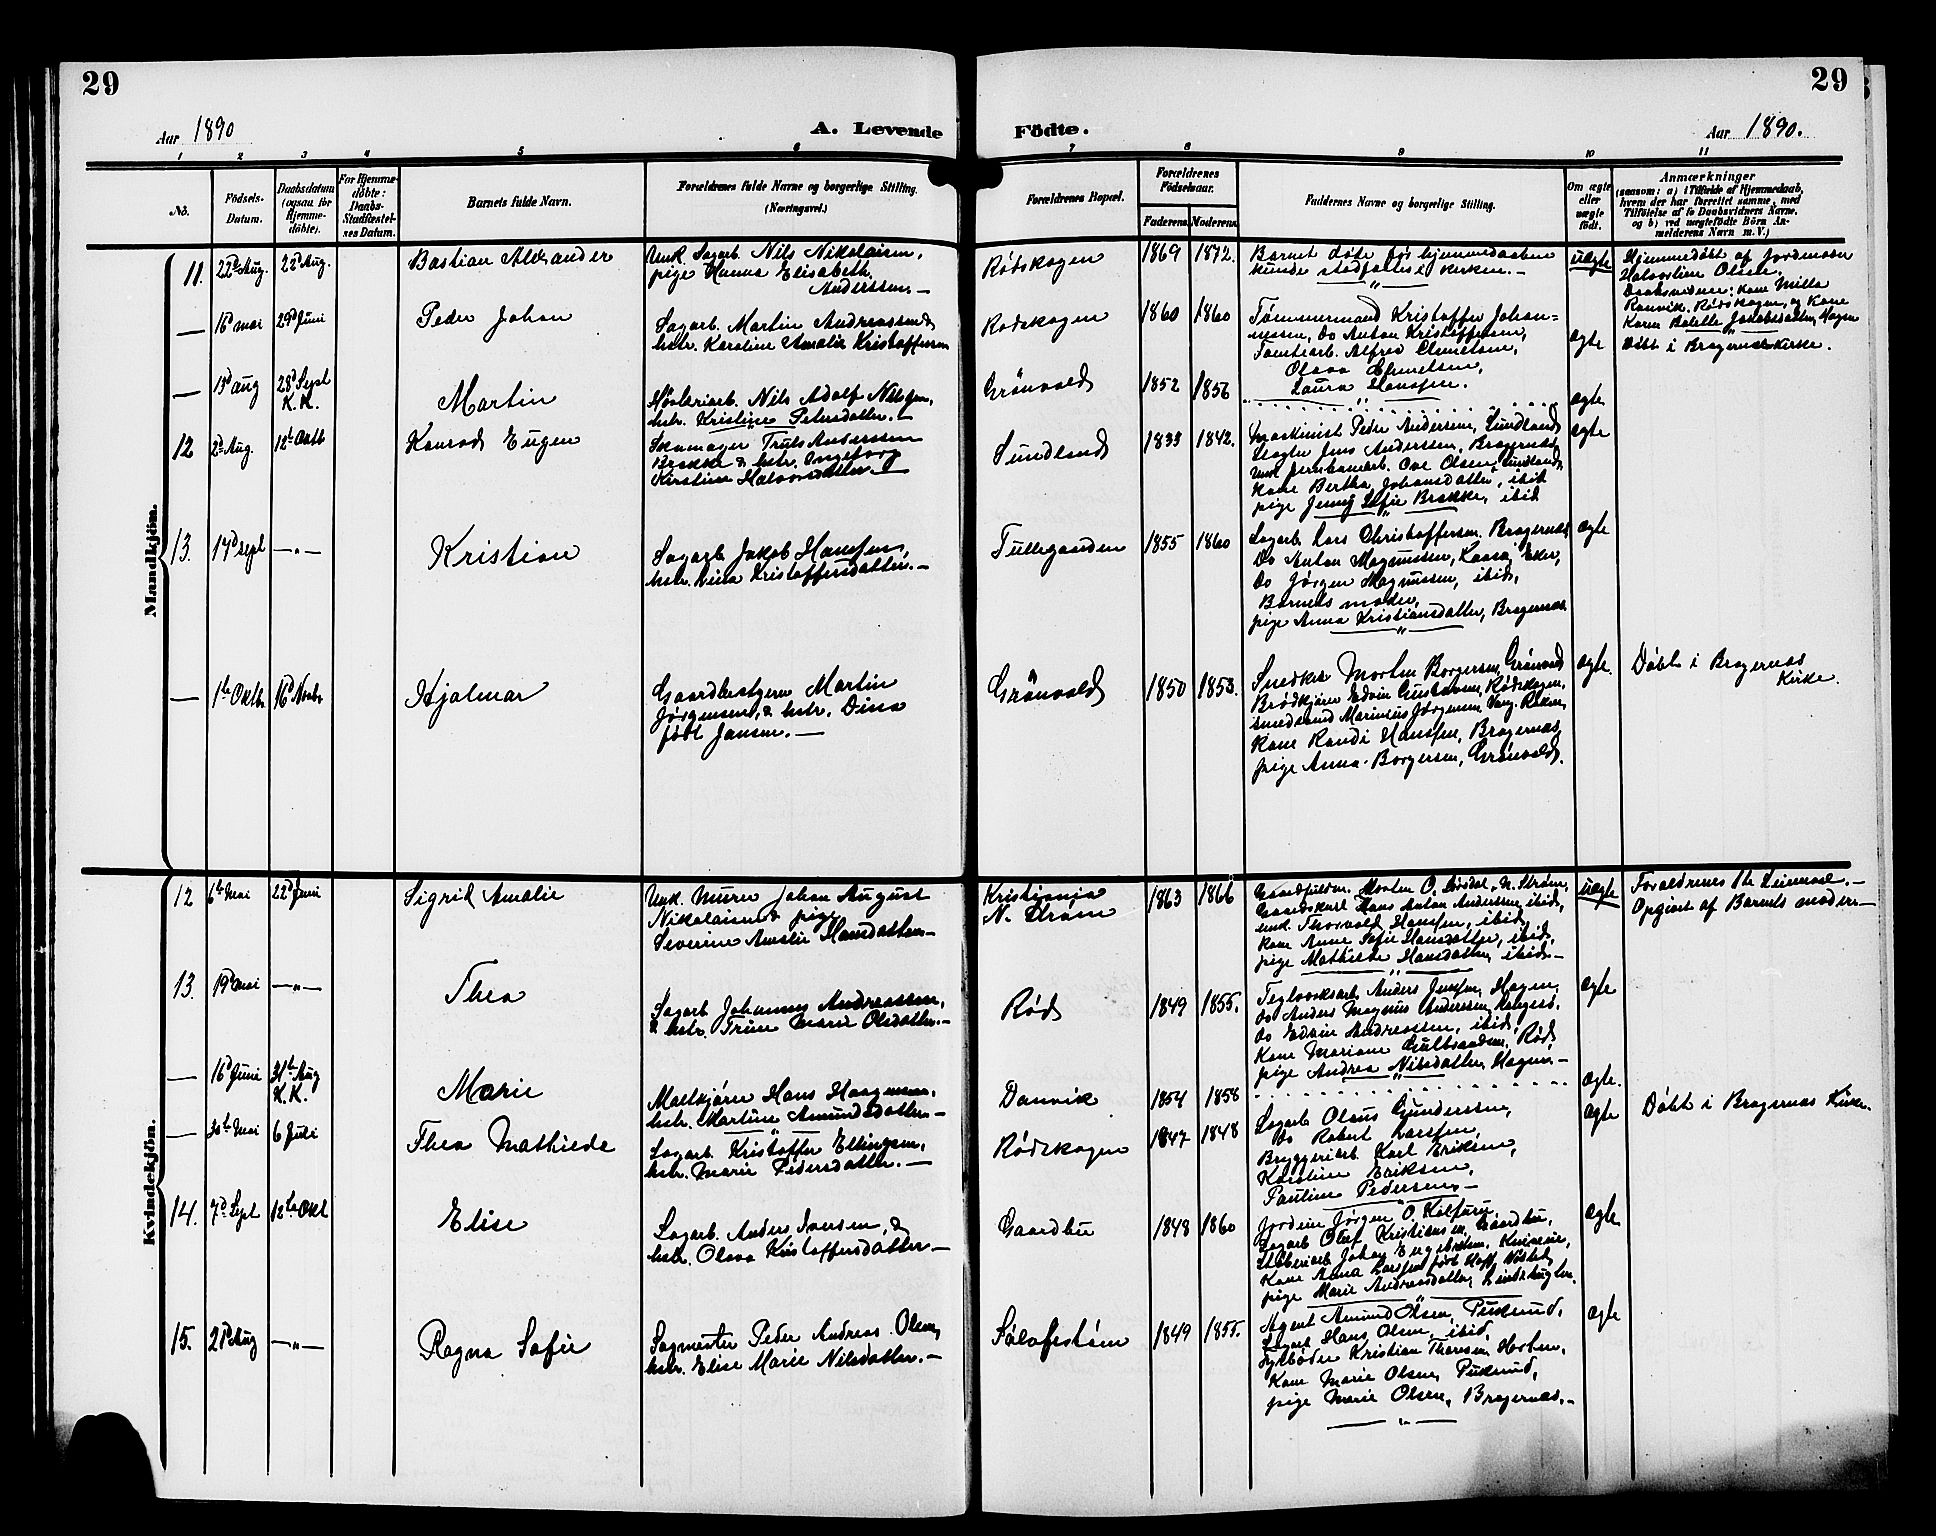 29
29
Aar 1890
A. Levende
Födte.
Aar 1890.
1 2 3 4 5 6 7 8 9 10 11
No.
Födsels-
Datum.
Daabsdatum
(ogsaa for
Hjemme-
döbte).
For Hjemme-
döbte:
Daabs-
Stadfæstel-
ses Datum.
Barnets fulde Navn.
Forældrenes fulde Navne og borgerlige Stilling.
(Næringsvei.)
Forældrenes Bopæl.
Forældrenes
Födselsaar.
Faderens. Moderens.
Faddernes Navne og borgerlige Stilling.
Om ægte
eller
uægte
født.
Anmærkninger
(saasom: a) i Tilfælde af Hjemmedaab,
hvem der har forrettet samme, med
Tilföielse af to Daabsvidners Navne,
og b) ved uægtefödte Börn An-
melderens Navn m. V.)
Mandkjön.
11. 22d Aug. 22d Aug.
Bastian Alexander
Unk Sagarb. Nils Nikolaisen,
pige Hanna Elisabeth
Anderssen. —
Rødskogen
1869 1872.
Barnet døde før hjemmedaaben
kunde stadfæstes i kirken. —
uægte
Hjemmedøbt af Jordemoder
Halvordine Olsen.
Daabsvidner: Kone Milla
Ramvik, Rødskogen, og Kone
Karen Bolette Jakobsdatter, Hagen
— 16d mai 29d Juni
Peder Johan
Sagarb. Martin Andreassen &
hstr. Karoline Amalie Kristoffersen
Rødskogen
1860 1860
Tømmermand Kristoffer Johan-
nessen, Do Anton Kristoffersen,
Tomtearb. Alfred Clmetsen,
Olava Clmetsen,
Laura Hanssen.
ægte
Døbt i Bragernes Kirke.
— 13d aug 28d Sept
K. K.
Martin
Høvleriarb. Nils Adolf Nilssen,
hstr. Kristine Petersdatter. —
Grønvold
1852 1856
ægte
12 2d Aug. 12te Oktb
Konrad Eugen
Skomager Truls Anderssen
Brække & hstr. Ingeborg
Kirstine Halvorsdatter. —
Sundland
1835 1842.
Maskinist Peder Andersen, Sundland
Slagter Jens Anderssen, Bragernes,
Unk Jernbanearb. Ove Olsen, Sundland,
Kone Bertha Johansdatter, ibid
pige Jenny Sofie Brække, ibid
ægte
13. 17d sept —„—
Kristian
Sagarb. Jakob Hanssen,
hstr. Lina Kristoffersdatter. —
Tulleganden
1855 1860
Sagarb Lars Christoffersen. Bragernes
Do Anton Magnussen, Kaasa, Eker,
Do Jørgen Magnussen, ibid,
Barnets moder,
pige Anna Kristiansdatter, Bragernes
ægte
— 1te Oktb 16d Novbr
Hjalmar
Gaardbestyrer Martin
Jørgensen, & hstr. Dina
født Jansen. —
Grønvold
1850 1853.
Snedker Morten Borgersen, Grønvold
Brødkjører Edvin Gustavsen, Rødskogen,
Smedsvend Marinius Jørgensen, Vang. Røken,
Kone Randi Hanssen, Bragernes,
pige Anna Borgersen, Grønvold.
ægte.
Døbt i Bragernes
Kirke.
Kvindekjön.
12 6te Mai 22d Juni
Sigrid Amalie
Unk. Murer Johan August
Nikolaisen & pige
Severine Amalie Hansdatter —
Kristiania
N. Strøm
1863 1866
Gaardfuldm. Morten O. Lørdal, N. Strøm,
Gaardskarl Hans Anton Andersen, ibid,
unk. Thorvald Hanssen, ibid,
Kone Anne Sofie Hansdatter, ibid,
pige Mathilde Hansdatter, ibid —
uægte
Forældrenes 1te Leiermaal. —
Opgivet af Barnets moder —
13. 19d mai —„—
Thea
Sagarb Johannes Andreassen,
& hstr. Trine Marie Olsdatter. —
Rød
1849 1855.
Teglverksarb. Anders Jenssen, Hagen,
Do Anders Magnus Andersen,
Do Edvin Andreassen, ibid,
Kone Mariane Gulbrandsen, Rød,
pige Andrea Nilsdatter, Hagen —
ægte
— 16d Juni 31te Aug
K. K.
Marie
Møllkjører Hans Haagensen,
hstr. Martine Amundsdatter —
Danvik
1854 1858
ægte.
— 30te Mai 6 Juli
Thea Mathilde
Sagarb. Kristoffer Ellingsen,
hstr. Marie Pedersdatter. —
Rødskogen
1847 1848
Sagarb Olaus Gundersen,
Do Robert Larssen,
Bryggeriarb. Karl Eriksen,
Karoline Eriksen,
Pauline Pedersen —
ægte
Døbt i Bragernes Kirke.
14. 7d Sept 12te Okt
Elise
Sagarb. Anders Iversen &
hstr. Olava Kristoffersdatter —
Gaardbu
1848 1860
Jordeier Jørgen O. Kolfuru,
Sagarb Oluf Kristiansen, Gaardbu,
Støberiarb Johan Engebretsen,
Kone Anna Larssen født Hoff, Nøsted,
pige Marie Andreasdatter,
ægte
15. 21d Aug —„—
Ragna Sofie
Sagmester Peder Andreas Olsen,
hstr. Elise Marie Nilsdatter. —
Sølvfastøen
1849 1855.
Agent Amund Olsen, Pukerud,
Sagarb Hans Olsen, ibid,
Fyrbøder Kristian Thoresen, Horten,
Kone Marie Olsen, Pukerud,
pige Marie Olsen, Bragernes. —
ægte